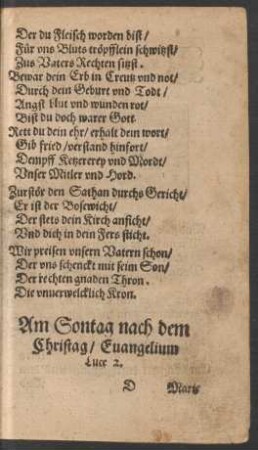 Der du Fleisch worden bist/
Für vns Bluts tröpfflein schwitzst/
Zus Vaters Rechten sitzst.
Bewar dein Erb in Creutz vnd not/
Durch dein Geburt vnd Todt/
Angst blut vnd wunden rot/
Bist du doch warer Gott
Rett du dein ehr/ erhalt dein wort/
Gib fried/ verstand hinfort/
Dempff Ketzerey vnd Mordt/
Vnser Mitler vnd Hord.
Zurstör den Sathan durchs Gericht/
Er ist der Bosewicht/
Der stets dein Kirch anficht/
Vnd dich in dein Fers sticht.
Wir preisen vnsern Vatern schon/
Der vns schenckt mit seim Son/
Der rechten gnaden Thron.
Die vnuerwelcklich Kron.
Am Sontag nach dem
Christag/ Euangelium
Luce 2.
D Maria